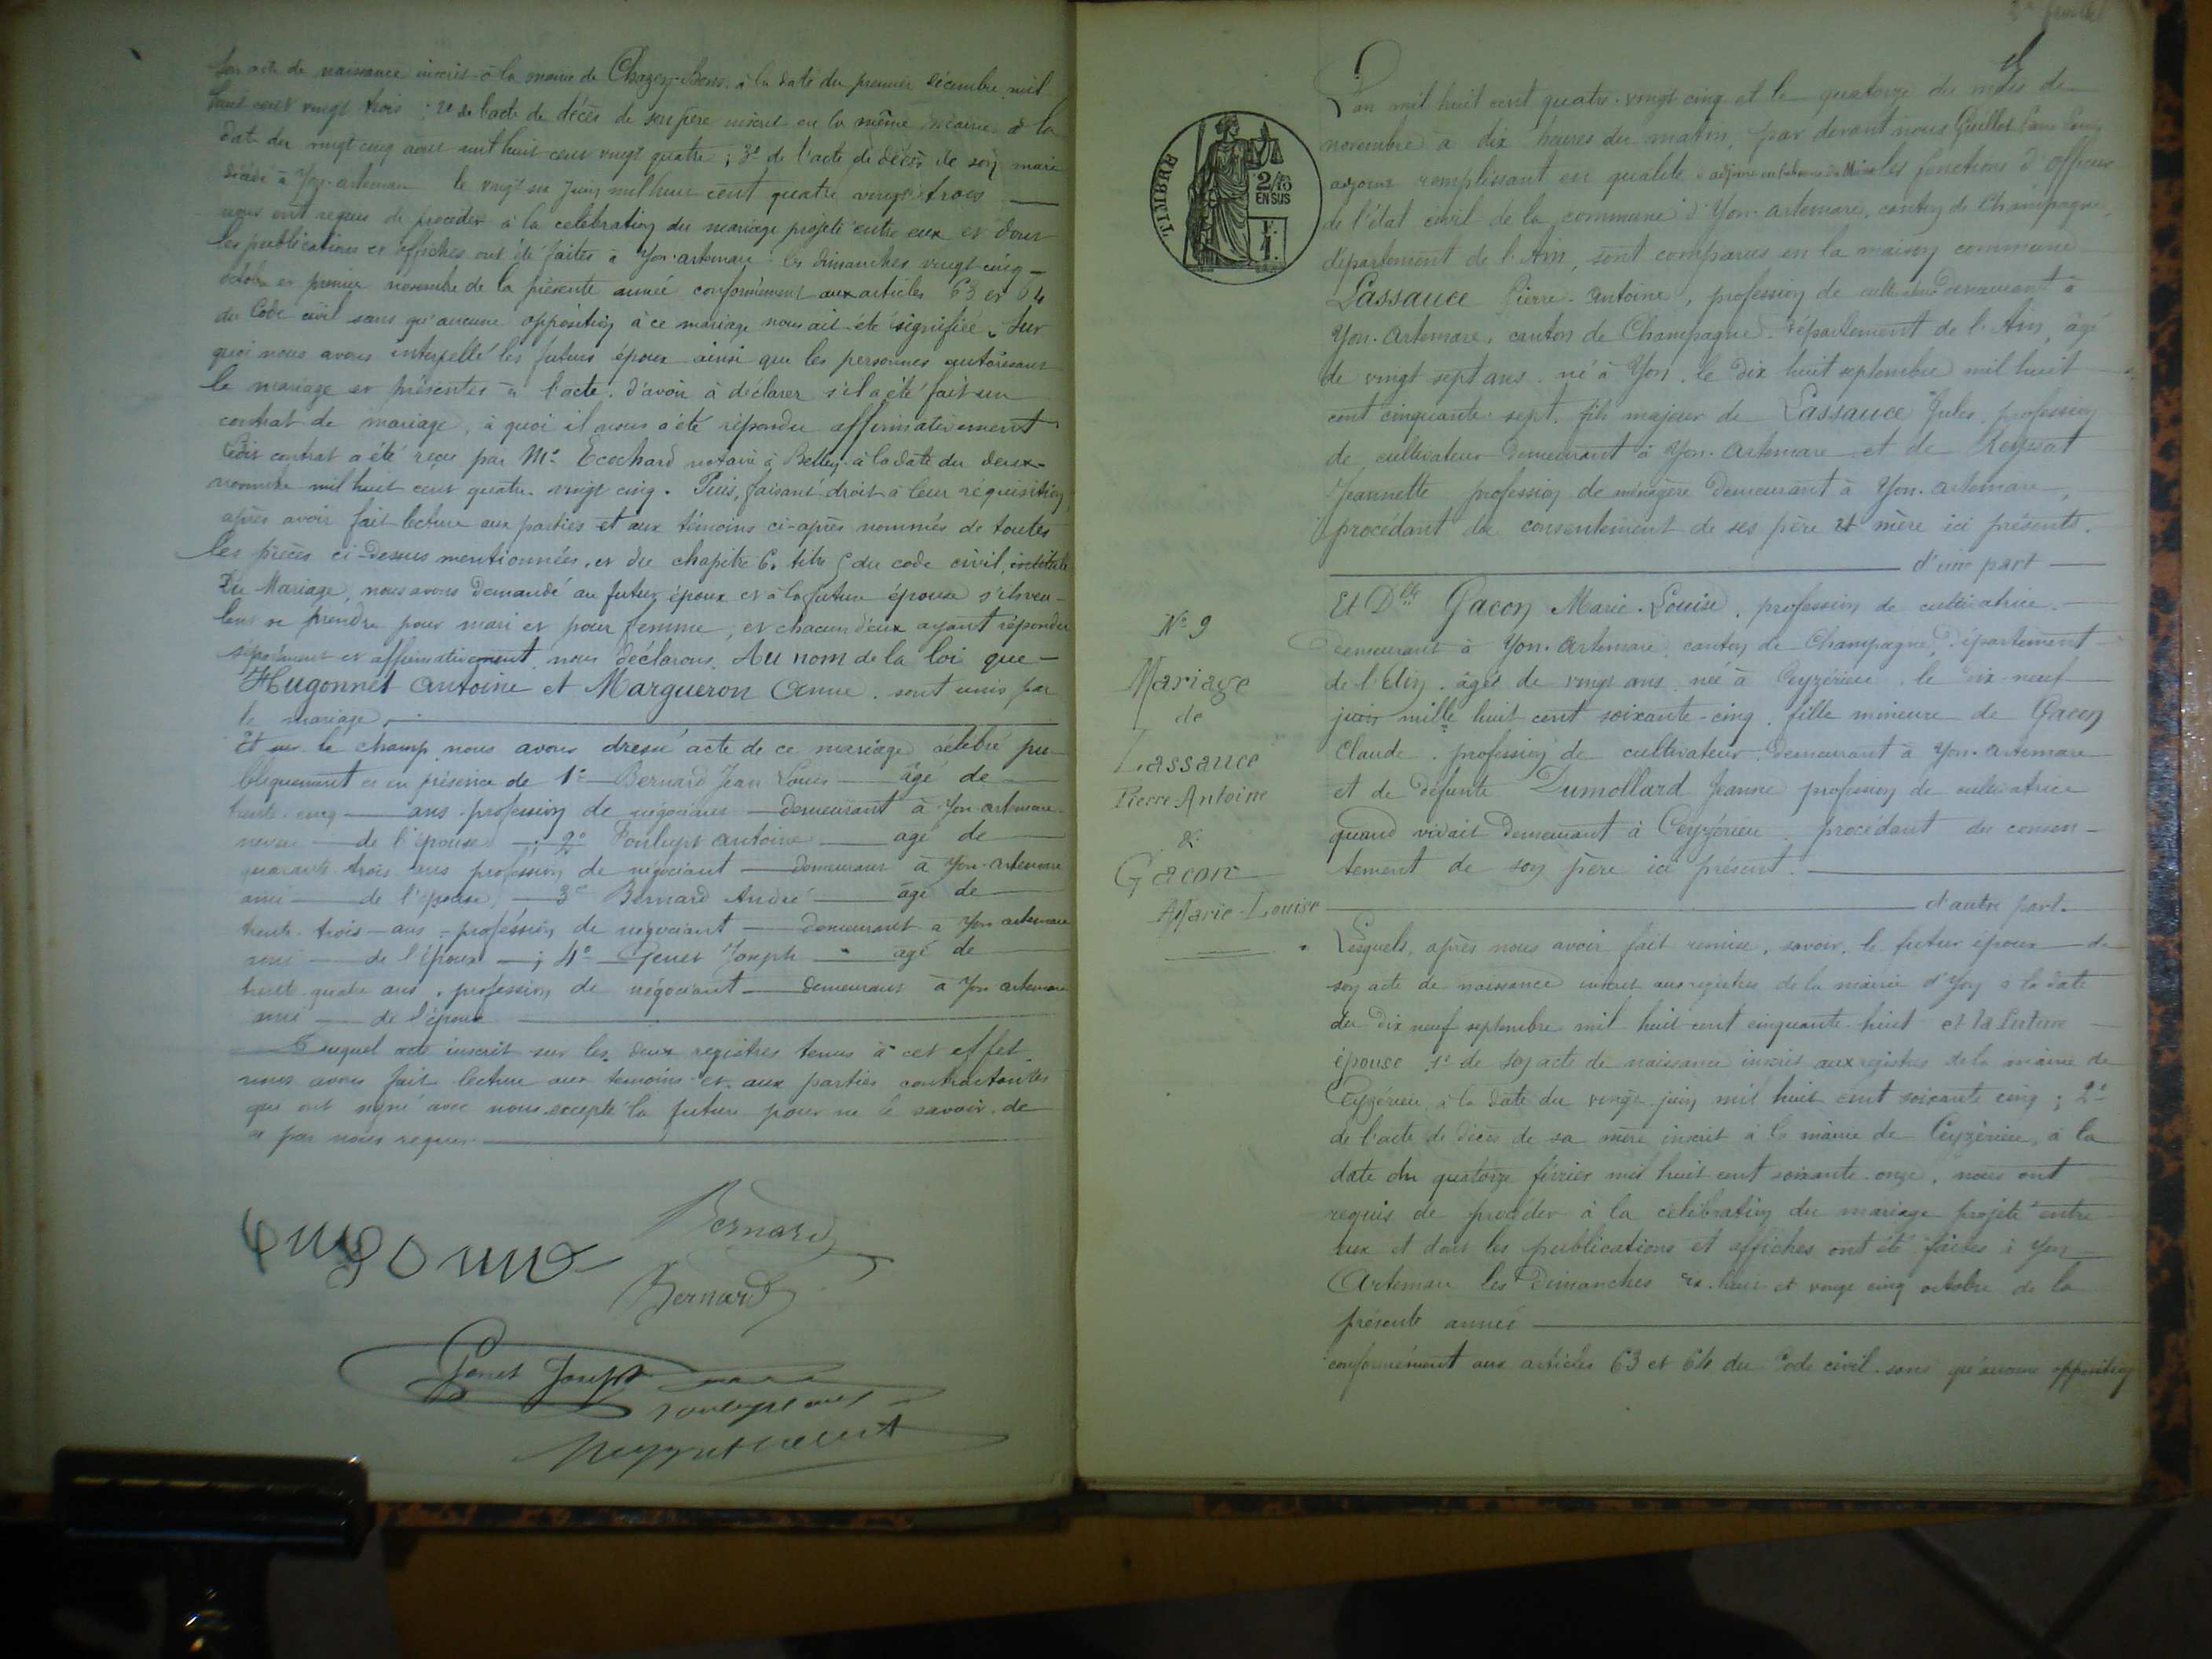 son acte de naissance inscrit à la mairie de Chazey-Bons à la date du premier décembre mil
huit cent vingt trois ; 2º de l'acte de décès de son père inscrit en la même mairie à la
date du vingt cinq août mil huit cent vingt quatre ; 3º de l'acte de décès de son mari
décédé à Yon-artemare le vingt six Juin mil huit cent quatre vingt trois
nous ont requis de procéder à la célébration du mariage projeté entre eux et dont
les publications et affiches ont été faites à Yon-artemare les dimanches vingt cinq
octobre et premier novembre de la présente année conformément aux articles 63 et 64
du Code civil sans qu'aucune opposition à ce mariage nous ait été signifiée. Sur
quoi nous avons interpellé les futurs époux ainsi que les personnes autorisant
le mariage et présentes à l'acte, d'avoir à déclarer s'il a été fait un
contrat de mariage, à quoi il nous a été répondu affirmativement
ledit contrat a été reçu par Me Ecochard notaire à Belley à la date du deux
novembre mil huit cent quatre-vingt cinq. Puis, faisant droit à leur réquisition,
après avoir fait lecture aux parties et aux témoins ci-après nommés de toutes
les pièces ci-dessus mentionnées, et du chapitre 6, titre 5 du code civil, intitulé
Du Mariage, nous avons demandé au futur époux et à la future épouse s'ils veu-
lent se prendre pour mari et pour femme, et chacun d'eux ayant répondu
séparément et affirmativement, nous déclarons, Au nom de la loi que
Hugonnet Antoine et Margueron Anne, sont unis par
le mariage.
Et sur le champ nous avons dressé acte de ce mariage célébré pu-
bliquement et en présence de 1º Bernard Jean Louis âgé de
trente cinq ans profession de négociant demeurant à Yon-artemare
neveu de l'épouse ; 2º antoine agé de
quarante trois ans profession de négociant demeurant à Yon-artemare
ami de l'épouse, 3º Bernard André âgé de
trente-trois ans profession de négociant demeurant à Yon artemare
ami de l'époux ; 4º Genet Joseph agé de
trente quatre ans, profession de négociant demeurant à Yon artemare
ami de l'époux
Duquel acte inscrit sur les deux registres tenus à cet effet,
nous avons fait lecture aux témoins et aux parties contractantes
qui ont signé avec nous excepté la future pour ne le savoir de
ce par nous requis.
Bernard
Bernard
Genet Joseph
L'an mil huit cent quatre-vingt cinq et le quatorze du mois de
novembre à dix heures du matin, par devant nous Guillot
adjoint remplissant en qualité les fonctions d'officier
de l'état civil de la commune d'Yon-artemare, canton de Champagne,
département de l'Ain, sont comparus en la maison commune
Lassauce Pierre-Antoine, profession de cultivateur demeurant à
Yon-Artemare, canton de Champagne, département de l'Ain, âgé
de vingt sept ans, né à Yon, le dix huit septembre mil huit
cent cinquante-sept, fils majeur de Lassauce Jules, profession
de cultivateur demeurant à Yon-artemare et de Reyssat
Jeannette profession de ménagère demeurant à Yon-artemare,
procédant du consentement de ses père et mère ici présents.
d'une part
Et Dlle Gacon Marie-Louise, profession de cultivatrice,
demeurant à Yon-Artemare, canton de Champagne, département
de l'Ain, âgée de vingt ans, née à Ceyzérieu, le dix-neuf
juin mille huit cent soixante-cinq, fille mineure de Gacon
Claude, profession de cultivateur demeurant à Yon-artemare
et de défunte Dumollard Jeanne profession de cultivatrice
quand vivait demeurant à Ceyzérieu, procédant du consen-
tement de son père ici présent.
d'autre part.
Lesquels, après nous avoir fait remise, savoir, le futur époux de
son acte de naissance inscrit aux registres de la mairie d'Yon à la date
du dix neuf septembre mil huit cent cinquante-huit et la future
épouse 1º de son acte de naissance inscrit aux registres de la mairie de
Ceyzérieu, à la date du vingt juin mil huit cent soixante cinq ; 2º
de l'acte de décès de sa mère inscrit à la mairie de Ceyzérieu, à la
date du quatorze février mil huit cent soixante-onze, nous ont
requis de procéder à la célébration du mariage projeté entre
eux et dont les publications et affiches ont été faites à Yon
Artemare les Dimanches dix-huit et vingt cinq octobre de la
présente année
conformément aux articles 63 et 64 du Code civil, sans qu'aucune opposition
TIMBRE
2/10
EN SUS
1 F.
Nº 9
Mariage
de
Lassauce
Pierre-Antoine
&
Gacon
Marie-Louise